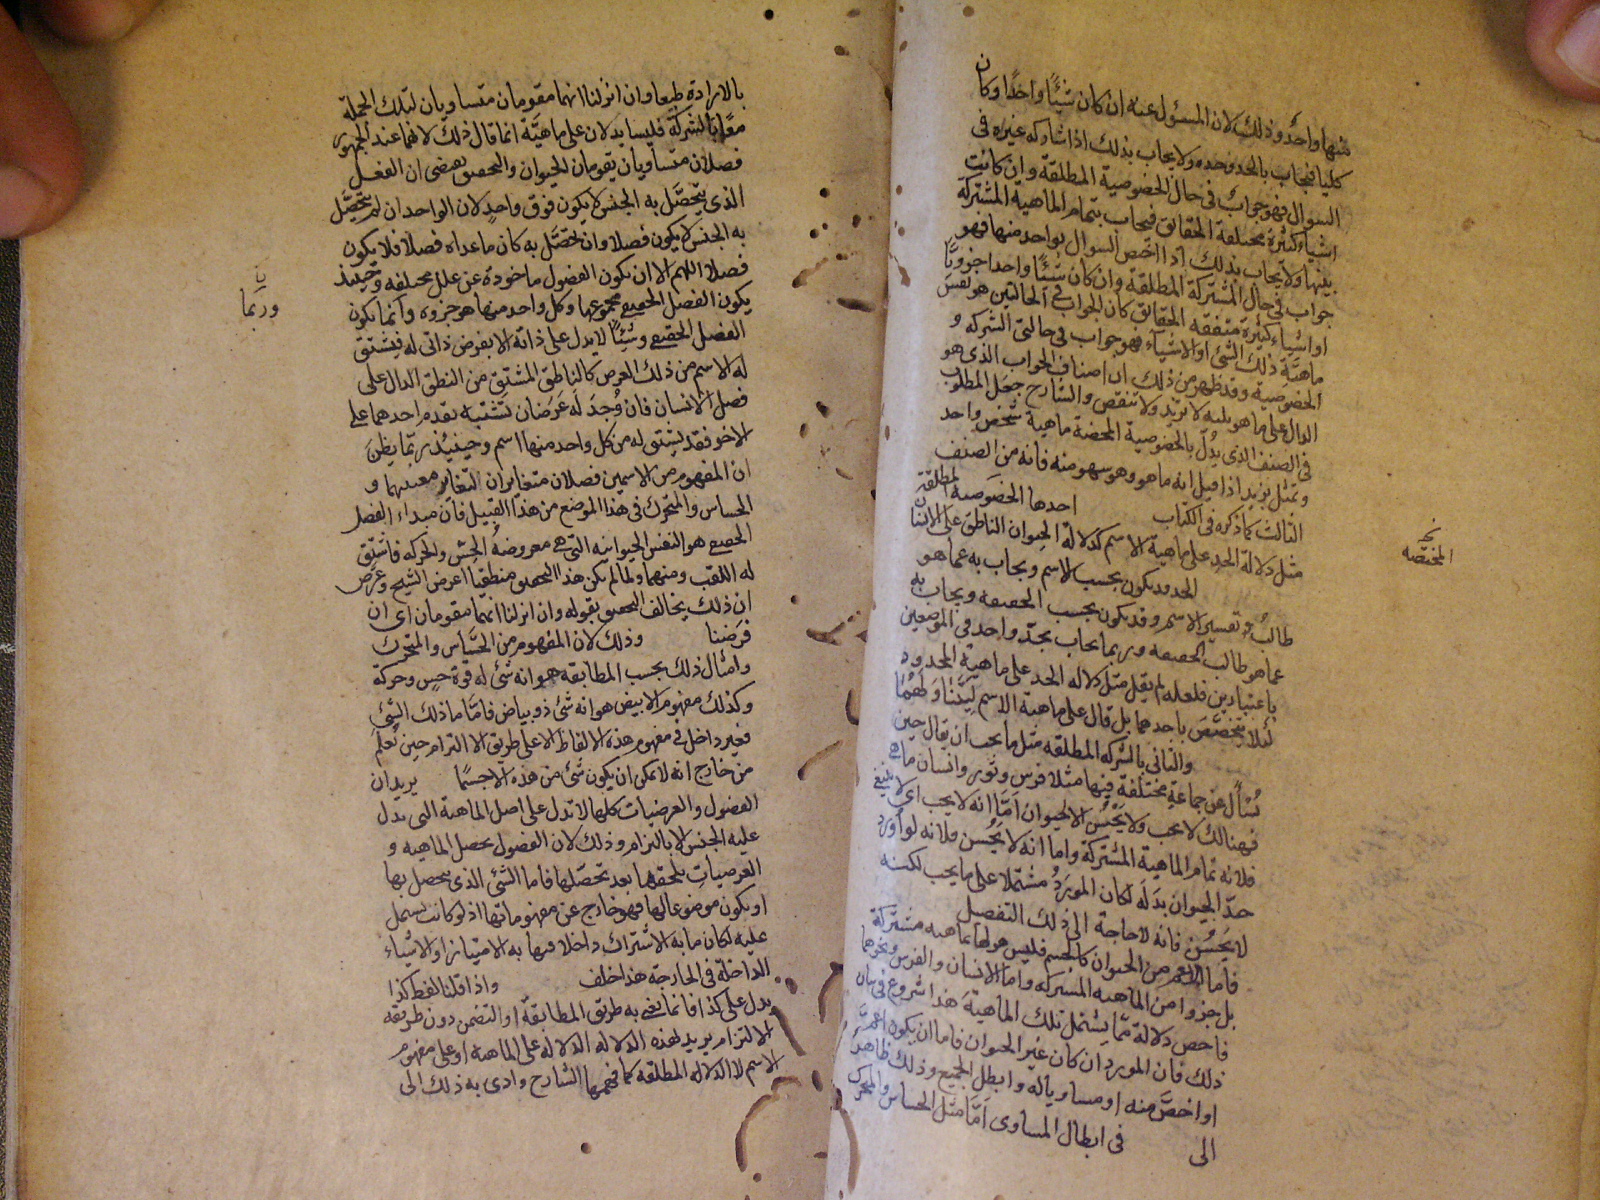 منها واحد وذلك لان المسئول عنه ان كان شيئا واحدا وكان
كليا فيجاب بالحد وحده ولا يجاب بذلك اذا شاركه غيره في
السوال فهو جواب في حال الخصوصية المطلقة وان كانت
اشياء كثيرة مختلفة الحقائق فيجاب بتمام الماهية المشتركة
بينها ولا يجاب بذلك اذا اختص السوال بواحد منها فهو
جواب في حال المشتركة المطلقة وان كان شيئا واحدا جزويا
او اشياء كثيرة متفقة الحقائق كان الجواب في الحالتين هو نفس
ماهية ذلك الشئ او الاشياء فهو جواب في حالتى الشركه و
الخصوصية وقد ظهر من ذلك ان اصناف الجواب الذى هو
الدال على ما هو بثلثه لا تزيد ولا تنقص والشارح جعل المطلوب
في الصنف الذى يدل بالخصوصية المحضة ماهية شخص واحد
وتمثل بزيد اذا قيل انه ما هو وهو سهو منه فانه من الصنف
الثالث كما ذكره في الكتاب احدها الخصوصية المطلقة
المختصة
مثل دلالة الحد على ماهية الاسم كدلالة الحيوان الناطق على الانسان
الحد قد يكون بحسب الاسم ويجاب به عما هو
طالب تفسير الاسم وقد يكون بحسب الحقيقه ويجاب به
عما هو طالب الحقيقه وربما يجاب بحد واحد في الموضعين
باعتبارين فلعله لم يقل مثل دلاله الحد على ماهية المحدود
لئلا يتخصص باحدهما بل قال على ماهية الاسم ليتناولهما
والثانى بالشركه المطلقه مثل ما يجب ان يقال حين
نسأل عن جماعة مختلفة فيها مثلا فرس وثور وانسان ما هي
فهنالك لا يجب ولا يحسن الا الحيوان اما انه لا يجب اى لا ينبغي
فلانه تمام الماهية المشتركة واما انه لا يحسن فلانه لو اورد
حد الحيوان بدله لكان المورد مشتملا على ما يجب لكنه
لا يحسن فانه لا حاجة الى ذلك التفصيل
فاما الاعم من الحيوان كالجسم فليس هو لها بماهيه مشتركة
بل جزوا من الماهيه المشتركه واما الانسان والفرس ونحوهما
فاخص دلالة مما يشتمل تلك الماهية هذا شروع في بيان
ذلك فان المورد ان كان غير الحيوان فاما ان يكون اعم
او اخص منه او مساويا له وابطل الجميع وذلك ظاهر
الى في ابطال المساوى اما مثل الحساس والمتحرك
بالارادة طبعا وان انزلنا انهما مقومان متساويان لتلك الجملة
معا بالشركة فليسا يدلان على ماهية انما قال ذلك لانهما عند الجمهور
فصلان متساويان يقومان الحيوان والتحقيق يقتضى ان الفصل
الذى يتحصل به الجنس لا يكون فوق واحد لان الواحد ان لم يتحصل
به الجنس لم يكون فصلا وان تحصل به كان ما عداه فصلا فلا يكون
فصلا اللهم الا ان تكون الفصول ماخوذة عن علل مختلفه وحينئذ
يكون الفصل الحقيقي مجموعها وكل واحد منها هو جزوه وانما يكون
وربما
الفصل الحقيقي وشيئا لا يدل على ذاته الا بفرض ذاتى له فيشتق
له الاسم من ذلك العرض كالناطق المشتق من النطق الدال على
فصل الانسان فان وجد له عرضان تشتبه تقدم احدهما على
الاخر فقد يشتق له من كل واحد منهما اسم وحينئذ ربما يظن
ان المفهوم من الاسمين فصلان متغايران لتغاير معنييهما و
الحساس والمتحرك في هذا الموضع من هذا القبيل فان مبداء الفصل
الحقيقي هو النفس الحيوانيه التى هي معروضة الحس والحركه فاشتق
له اللقب ومنهما ولما لم يكن هذا التحقيق منطقيا اعرض الشيخ وعرض
ان ذلك يخالف التحقيق بقوله وان انزلنا انهما مقومان اى ان
فرضنا وذلك لان المفهوم من الحساس والمتحرك
وامثال ذلك بحسب المطابقة هو انه شئ له قوة حس وحركة
وكذلك مفهوم الابيض هو انه شئ ذو بياض فاما ما ذلك الشئ
فغير داخل في مفهوم هذه الالفاظ الا على طريق الالتزام حين تعلم
من خارج انه لا يمكن ان يكون شئ من هذه الا جسما يريد ان
الفصول والعرضيات كلها لا تدل على اصل الماهية التى يدل
عليه الجنس الا بالتزام وذلك لان الفصول تحصل الماهيه و
العرضيات تلحقها بعد تحصلها فاما الشئ الذى يتحصل بها
او يكون موضوعا لها فهو خارج عن مفهوماتها اذ لو كانت تشتمل
عليه لكان ما به الاشتراك داخلا فيها به الامتياز او الاشياء
الداخلة في الخارجة هذا خلف واذا قلنا لفظ كذا
يدل على كذا فانما نعنى به طريق المطابقة او التضمن دون طريقه
الالتزام يريد بهذه الدلاله الدلالة على الماهيه او على مفهوم
الاسم لا الدلاله المطلقه كما فهمها الشارح وادى به ذلك الى